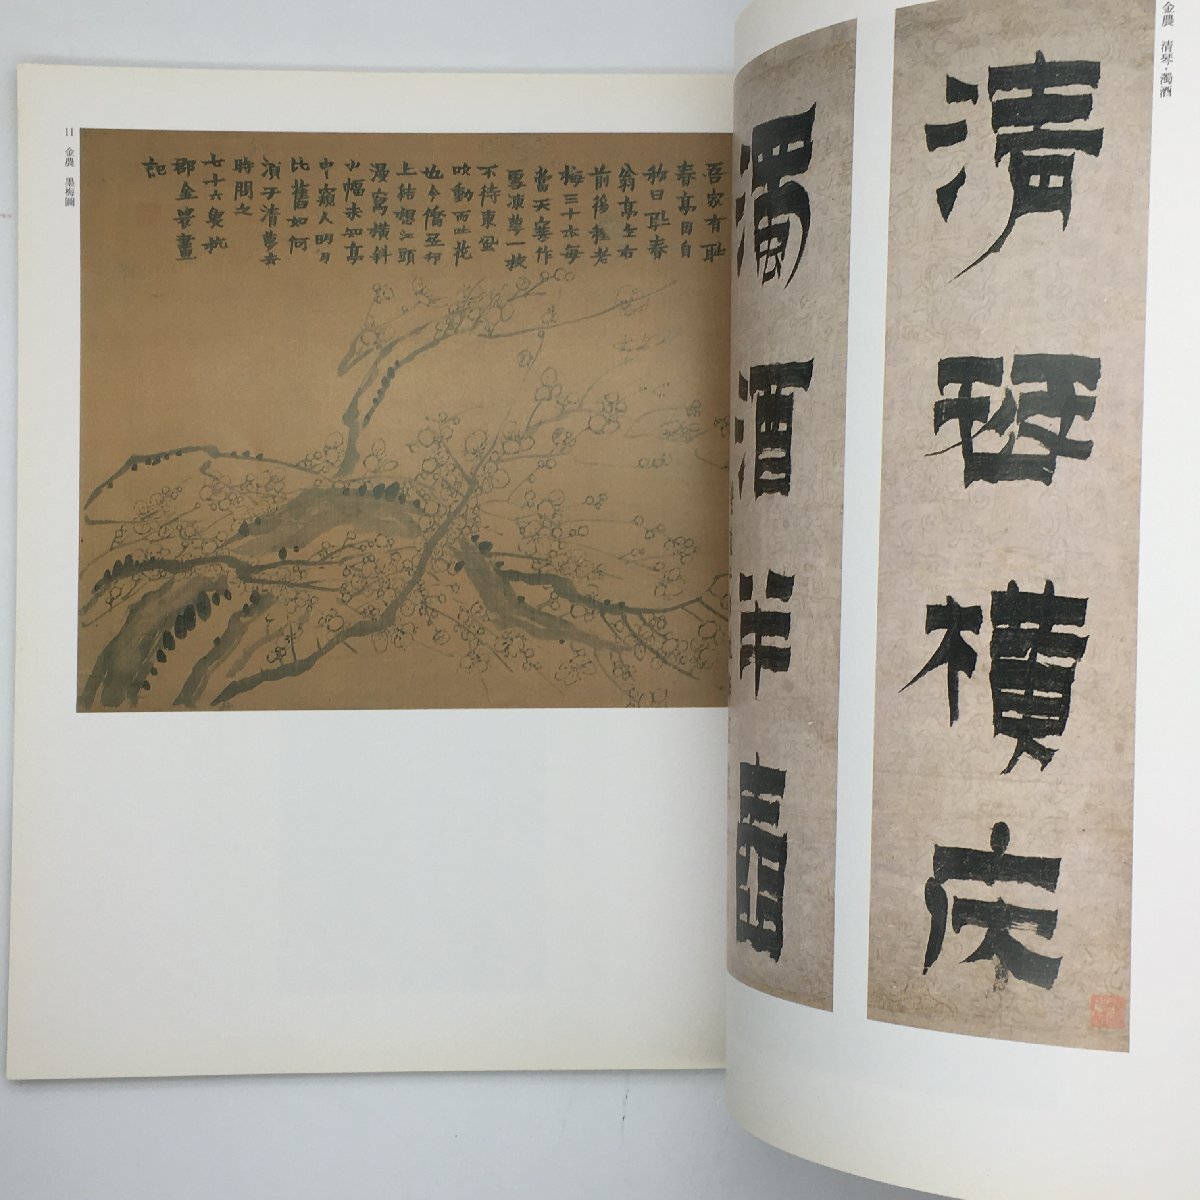 金農 清琴・濁酒
清琴橫床
濁酒半壺
11 金農 墨梅圖
吾家有耻
春亭因自
称曰耻春
翁亭左右
前後種老
梅三十本每
當天寒作
雪凍萼一枝
不待東風
吹動而吐花
也今僑居邗
上結想江頭
漫寫橫斜
小幅未知亭
中窺人明月
比舊如何
須于清夢去
時問之
七十六叟杭
郡金農畫
記